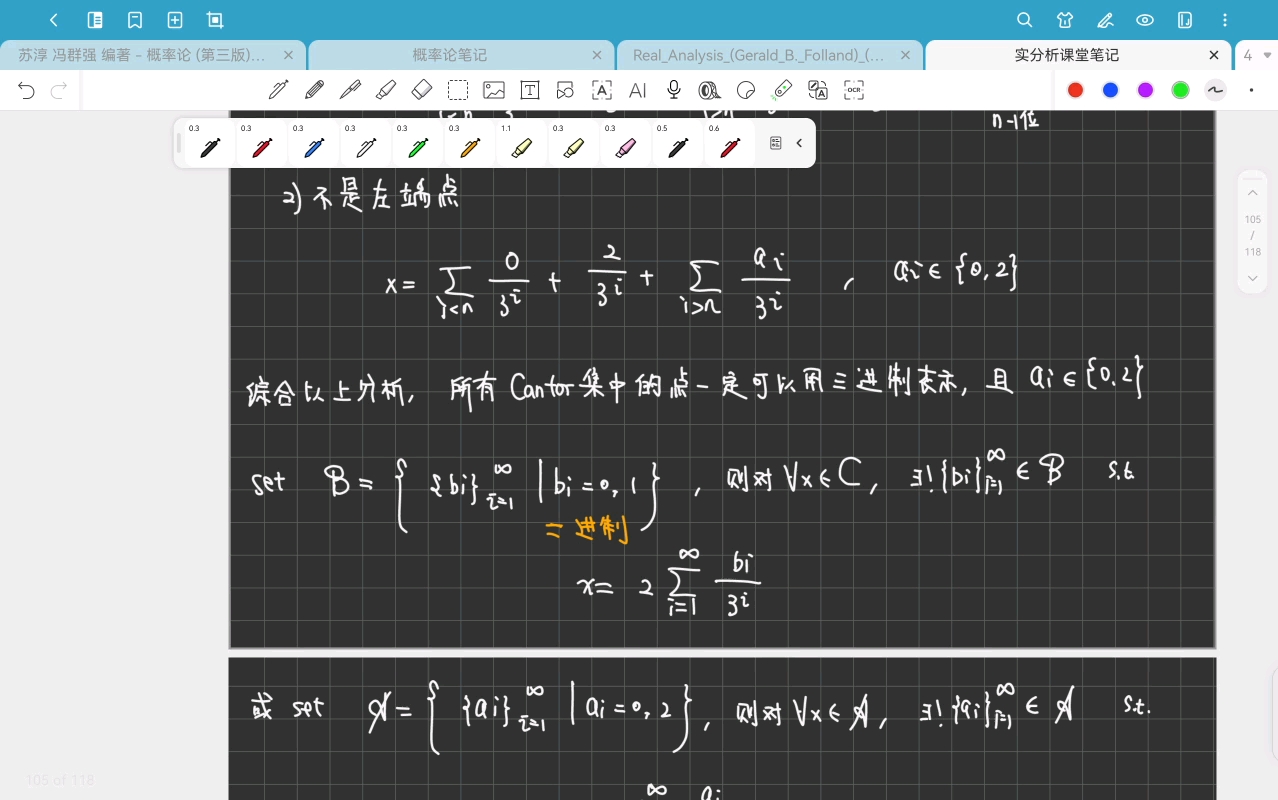 苏淳 冯群强 编著 - 概率论 (第三版)... ×
概率论笔记 ×
Real_Analysis_(Gerald_B._Folland)_(... ×
实分析课堂笔记 ×
4
T A AI OCR
n-1位
0.3 0.3 0.3 0.3 0.3 0.3 1.1 0.3 0.3 0.5 0.6
2) 不是左端点
x = ∑_{i<n} 0/3^i + 2/3^i + ∑_{i>n} a_i/3^i , a_i ∈ {0,2}
综合以上分析, 所有Cantor集中的点一定可以用三进制表示, 且 a_i ∈ {0,2}
set B = { {b_i}_{i=1}^∞ | b_i = 0, 1 } , 则对 ∀x ∈ C, ∃! {b_i}_{i=1}^∞ ∈ B s.t.
二进制
x = 2 ∑_{i=1}^∞ b_i/3^i
或 set A = { {a_i}_{i=1}^∞ | a_i = 0, 2 } , 则对 ∀x ∈ A, ∃! {a_i}_{i=1}^∞ ∈ A s.t.
∞ a_i
105
/
118
105 of 118